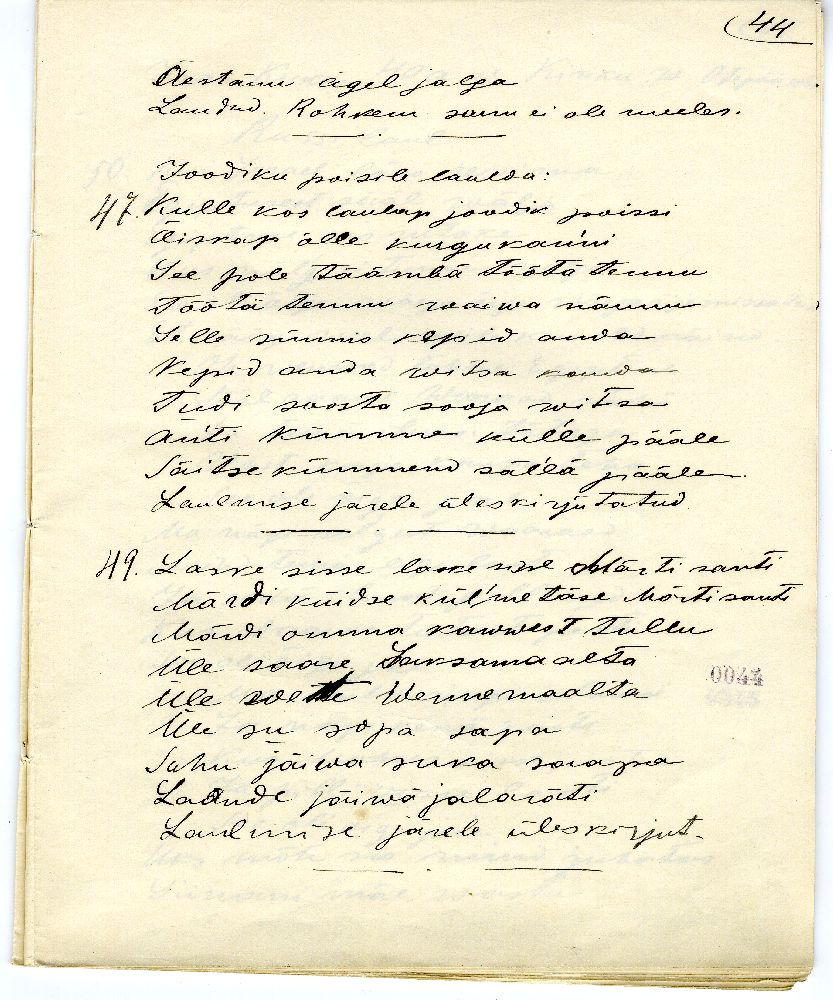 44
Äestämu ägel jalga
Laudud. Rohkem sõnu ei ole meeles.
Joodiku poisile laulda:
47. Kulle kos laulap joodik poissi
Äiskap alle kurgukauni
See pole täämbä töötä tennu
Töötä tennu waiwa nännu
Selle sünnis kepid anda
Kepid anda witsa kanda
Tudi soosta sooja witsa
Anti kümme külle pääle
Säitse kümmend sällä pääle
Laulmise järele üleskirjutatud
49. Laske sisse laske sisse Märti santi
Märdi küüdse külmetäse Märti santi
Märdi omma kawwest tullu
Üle saare Saksamaalta
Üle wette Wennemaalta
Üle su sopa sapa
Sohu jäiwa suka saapa
Laande jäiwä jalaräti
Laulmise järele üleskirjut.
0044